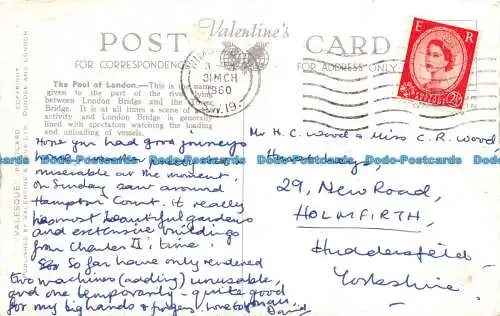 POST
Valentine's
CARD
FOR CORRESPONDENCE
FOR ADDRESS ONLY
E R
POSTAGE REVENUE
2½D
31 MCH
1960
S.W.19.
The Pool of London.— This is the name
given to the part of the river lying
between London Bridge and the Tower
Bridge. It is at all times a scene of
activity and London Bridge is generally
lined with spectators watching the loading
and unloading of vessels.
VALESQUE POSTCARD
PUBLISHED BY VALENTINE & SONS LTD. DUNDEE AND LONDON.
COPYRIGHT
Hope you had good journeys
home.
miserable at the moment,
on Sunday saw around
Hampton Court. It really
has most beautiful gardens
and extensive buildings
from Charles II's time.
So far have only rendered
two machines (adding) unusable,
and one temporarily – quite good
for my big hands & fingers. Love to you all
David
Mr H. C. Wood & Miss C. R. Wood,
29, New Road,
HOLMFIRTH,
Huddersfield
Yorkshire.
Dodo-Postcards Dodo-Postcards Dodo-Postcards Dodo-Postcards Dodo-Postcards